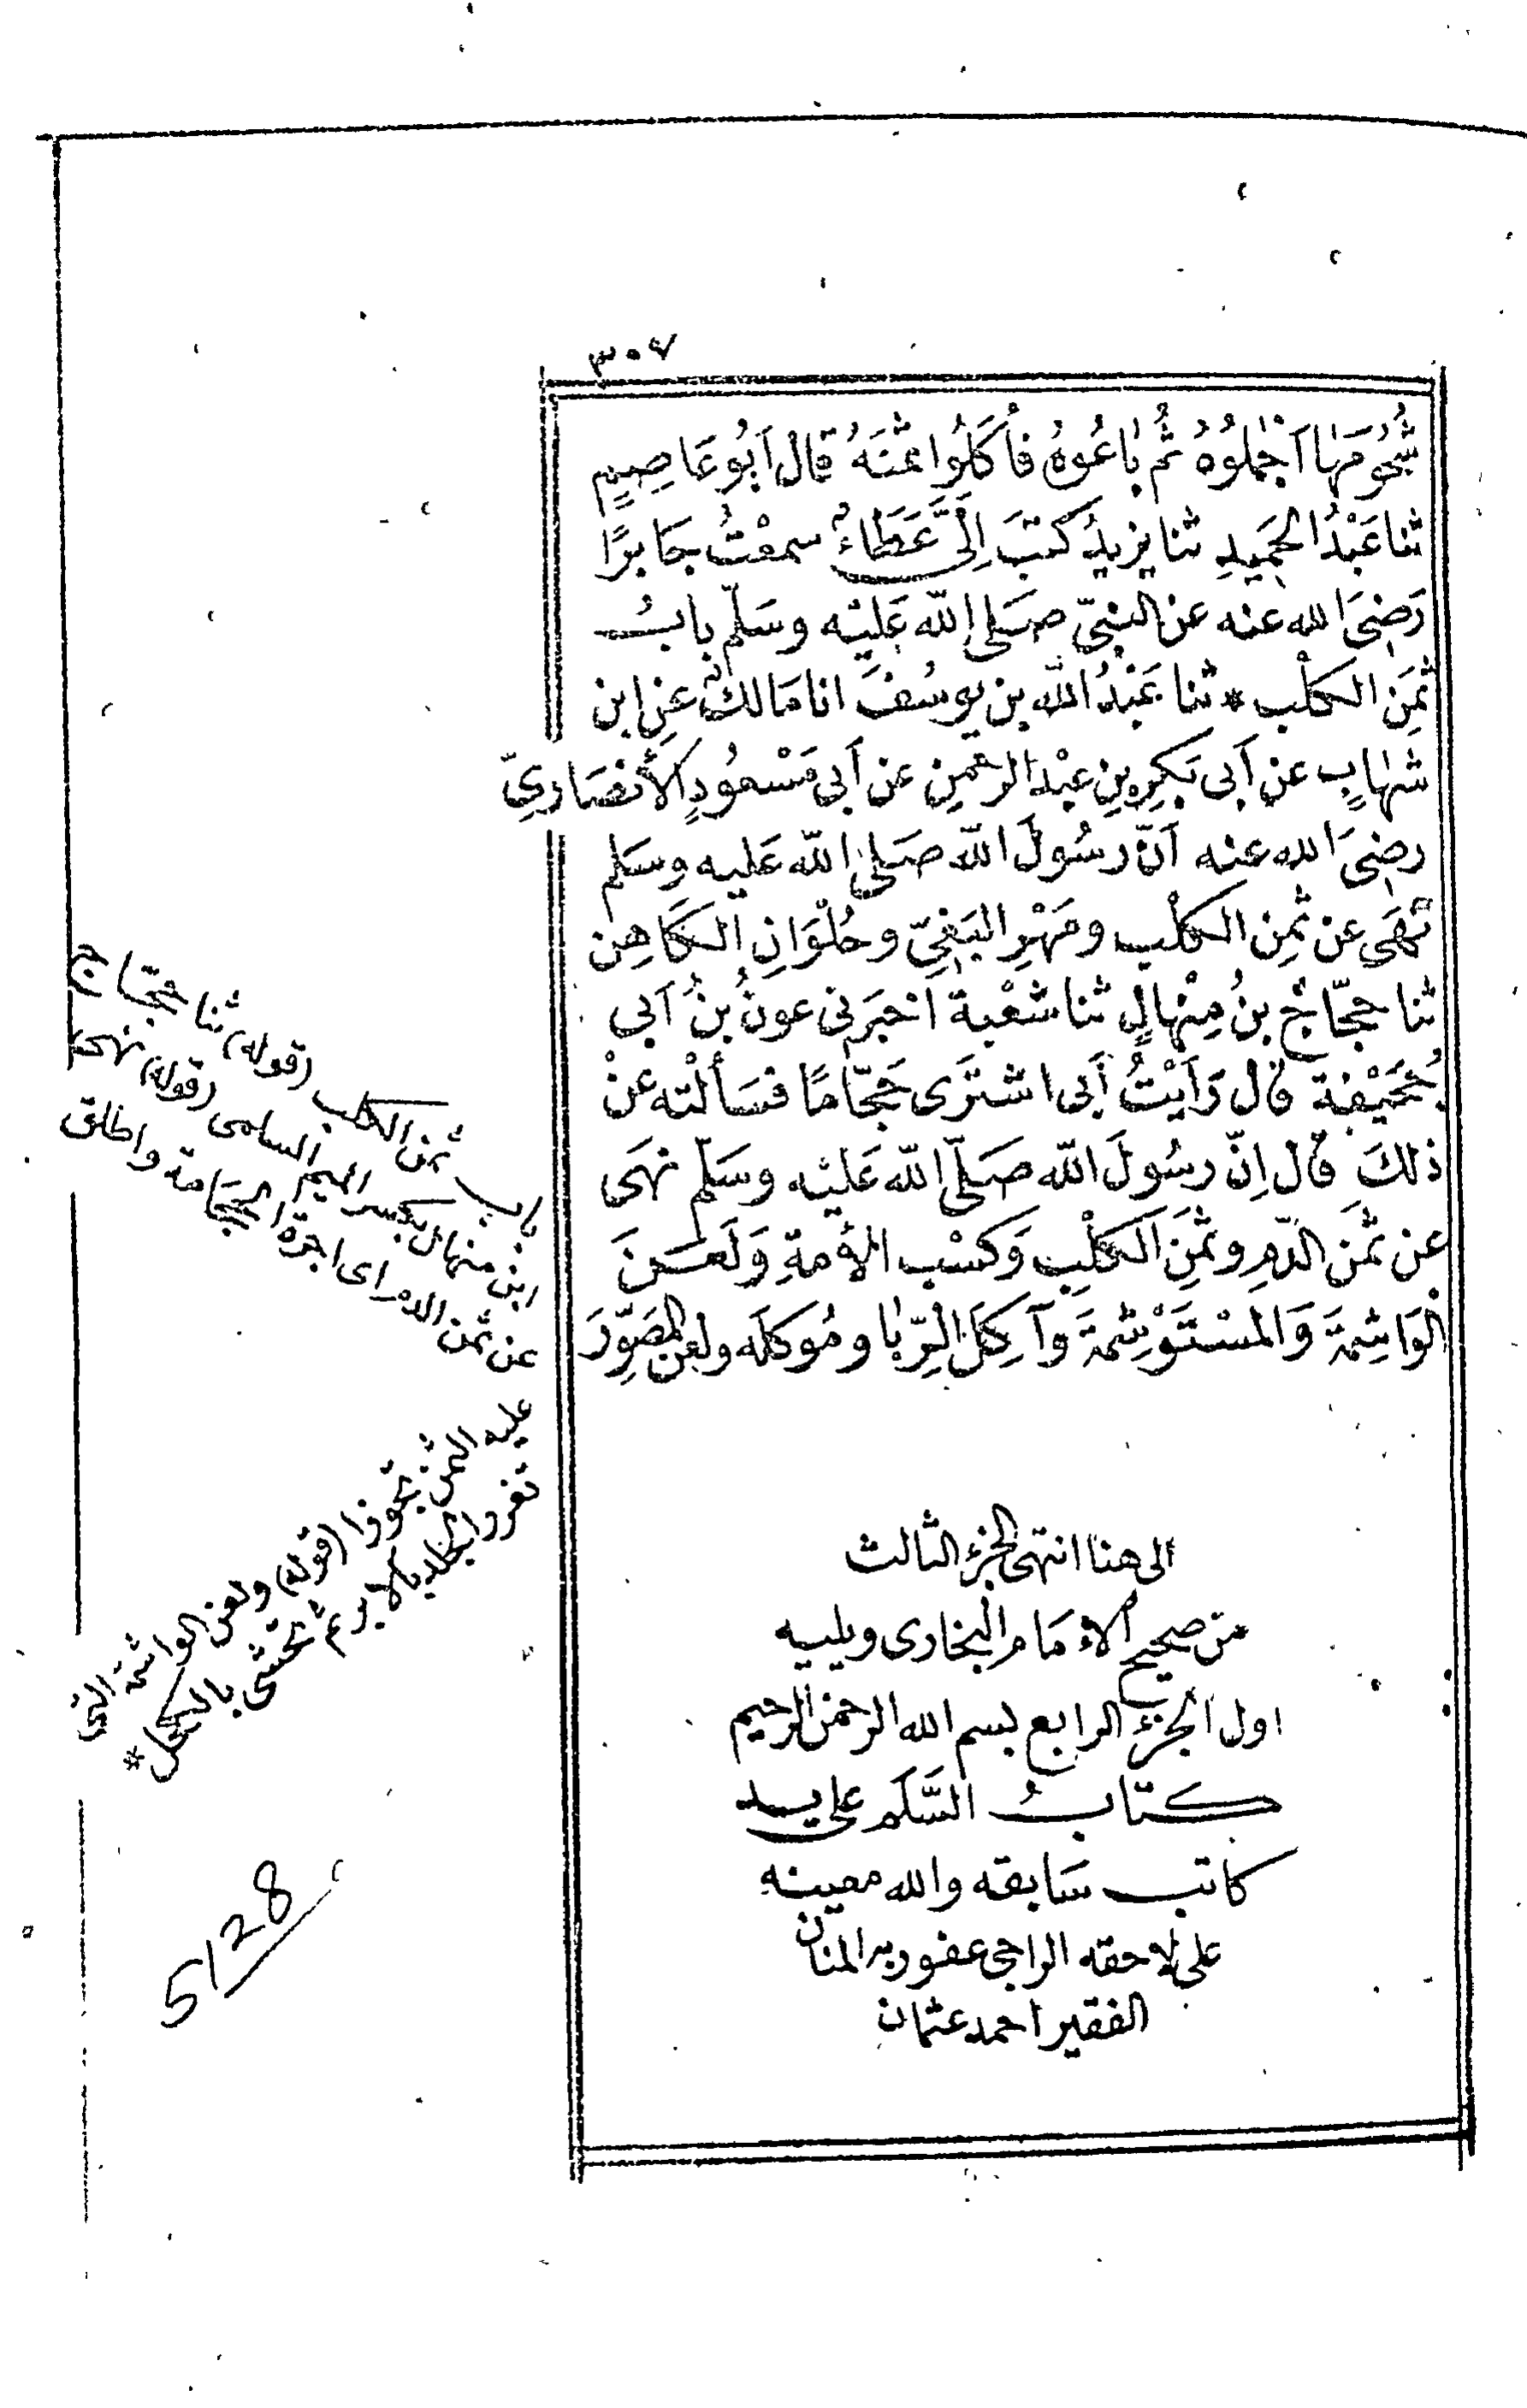 ٣٠٧
شُحُومَهَا اَجْمَلُوهُ ثُم بَاعُوهُ فأكَلُوا ثمَنَهُ قال اَبُو عَاصِمٍ
ثنا عَبْدُ الحَمِيدِ ثنا يزيدُ كتبَ اِلَىَّ عَطَاءٌ سمعْتُ جَابرًا
رَضِىَ الله عنه عن النبىّ صَلى الله عَليْه وسَلّم بابُ
ثمَنِ الكلْب * ثنا عَبْدُ الله بن يوسُفَ انا مَالكٌ عَنِ ابن
شهَابٍ عن اَبى بَكرِ بنِ عبْد الرحمنِ عن اَبى مَسْعُودٍ الأنصَارىّ
رضىَ الله عنه اَنّ رسُولَ الله صَلى الله عَليه وسَلم
نَهَى عن ثمنِ الكلْب ومَهْرِ البَغىِّ وحُلْوَانِ الكَاهِن
ثنا حجّاجُ بنُ مِنْهالٍ ثنا شعْبة اخبَرنى عونُ بنُ اَبى
جُحَيْفة قال رَاَيْتُ أَبى اشترَى حَجّامًا فسَألْته عنْ
ذلكَ قال اِنّ رسُولَ الله صَلّى الله عَليْه وسَلّم نهَى
عن ثمَن الدّمِ وثمَنِ الكلْبِ وَكسْب الأمةِ وَلَعَنَ
الوَاشِمَةَ وَالمسْتَوْشِمَةَ وآكِلَ الرِّبَا ومُوكلَه ولعن المصَوِّرَ
الى هنا انتهى الجزء الثالث
من صحيح الامام البخارى ويليه
اول الجزء الرابع بسم الله الرحمن الرحيم
كتابُ السَّلَم على يد
كاتب سَابقه والله معينه
على لاحقه الراجى عفو ربه المنان
الفقير احمد عثمان
باب ثمن الكلب (قوله) ثنا حجّاج
ابن منهال بكسر الميم السلمى (قوله) نهى
عن ثمن الدم اى اجرة الحجَامة واطلق
عليه الثمن تجوزا (قوله) ولعن الواشمة التى
تغرز الجلد بالابر ثم تحشى بالكحل *
5/28